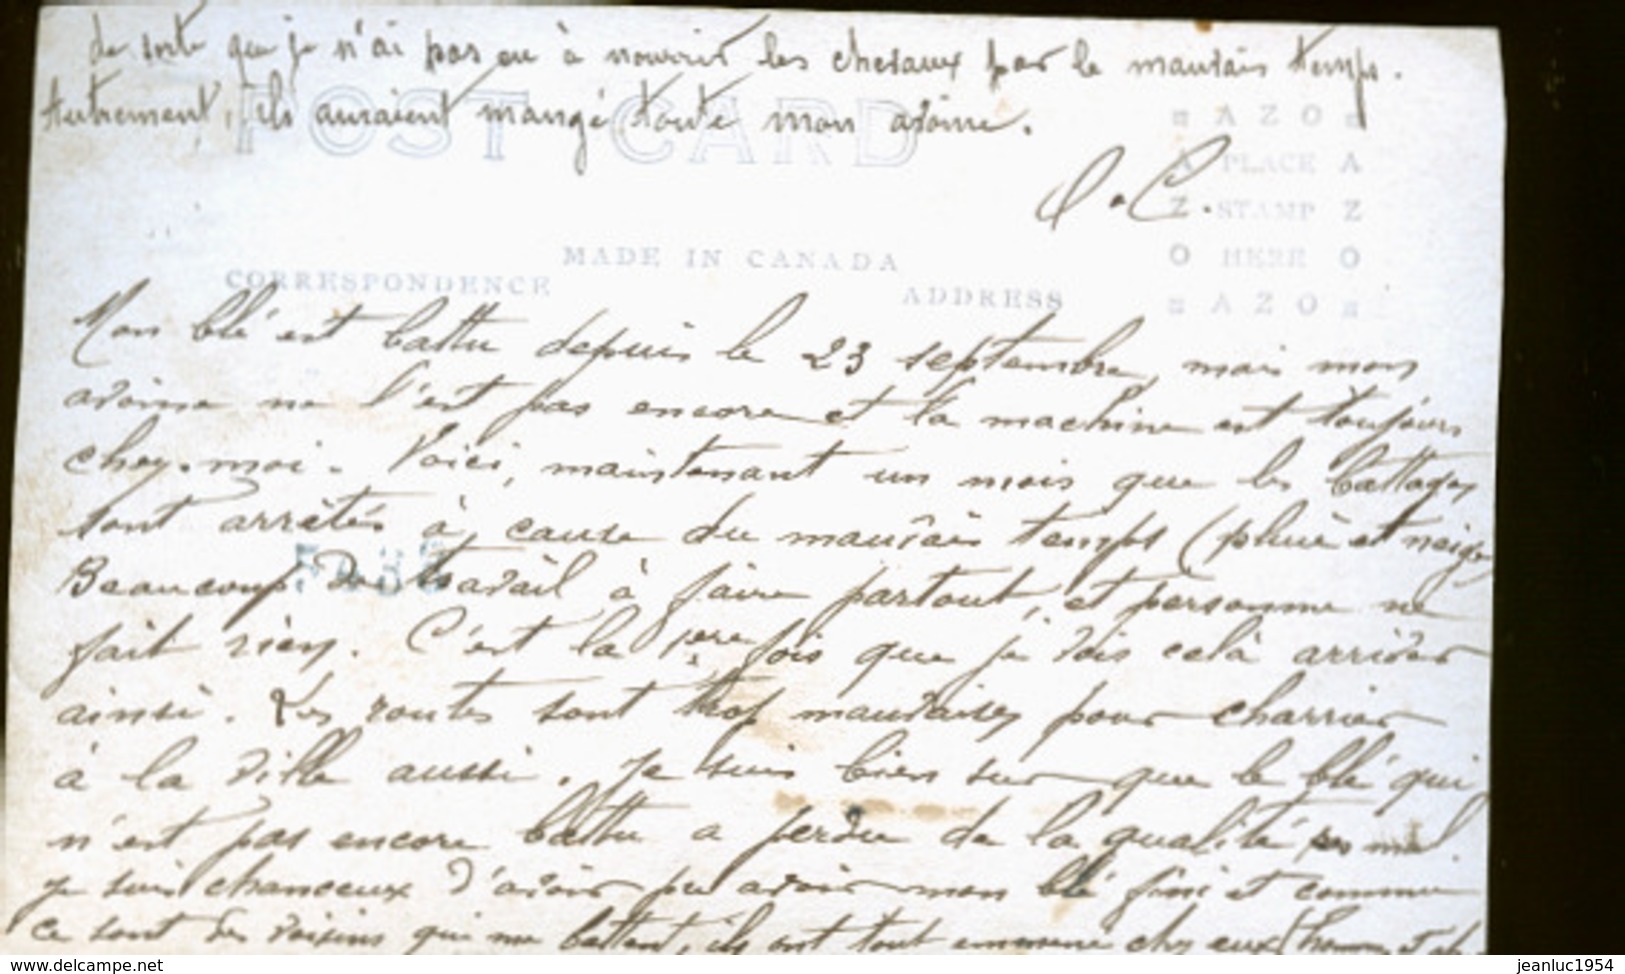 de sorte que je n'ai pas eu à nourrir les chevaux par le mauvais temps.
Autrement, ils auraient mangé toute mon avoine.
POST CARD
AZO
A PLACE A
Z STAMP Z
O HERE O
AZO
O.C.
MADE IN CANADA
CORRESPONDENCE
ADDRESS
Mon blé est battu depuis le 23 septembre, mais mon
avoine ne l'est pas encore et la machine est toujours
chez-moi. Voici, maintenant un mois que les battages
sont arrêtés à cause du mauvais temps (pluie et neige
Beaucoup de travail à faire partout, et personne ne
fait rien. C'est la 1ère fois que je vois celà arriver
ainsi. Les routes sont trop mauvaises pour charrier
à la ville aussi. Je suis bien sur que le blé qui
n'est pas encore battu a perdu de la qualité
Je suis chanceux d'avoir pu avoir mon blé fini et comme
ce sont des voisins qui me battent, ils ont tout emmené chez eux
www.delcampe.net
jeanluc1954